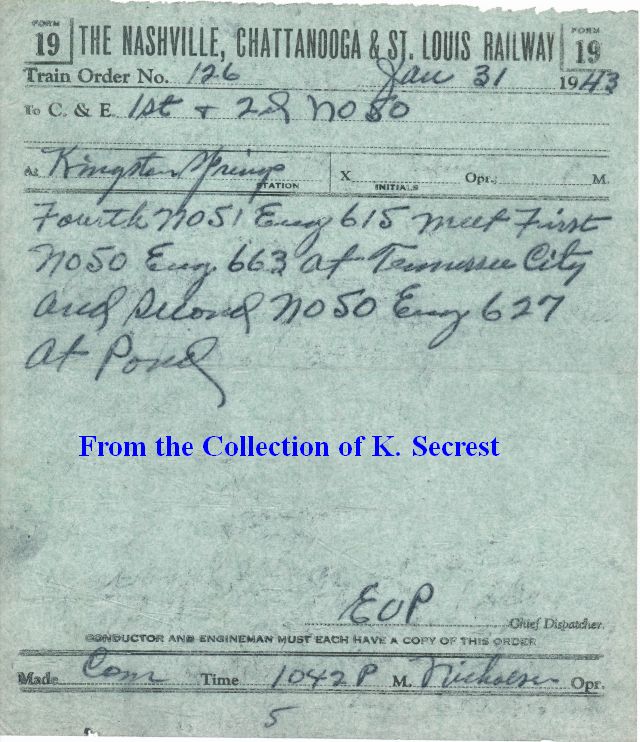 FORM 19 THE NASHVILLE, CHATTANOOGA & ST. LOUIS RAILWAY FORM 19
Train Order No. 126 Jan 31 1943
To C. & E. 1st + 2d No 50
At Kingston Springs STATION X INITIALS Opr.; M
Fourth No 51 Eng 615 meet First
No 50 Eng. 663 at Tennessee City
and Second No 50 Eng 627
at Pond
From the Collection of K. Secrest
EOP Chief Dispatcher.
CONDUCTOR AND ENGINEMAN MUST EACH HAVE A COPY OF THIS ORDER
Made Com Time 1042 P M. Nicholson Opr.
5